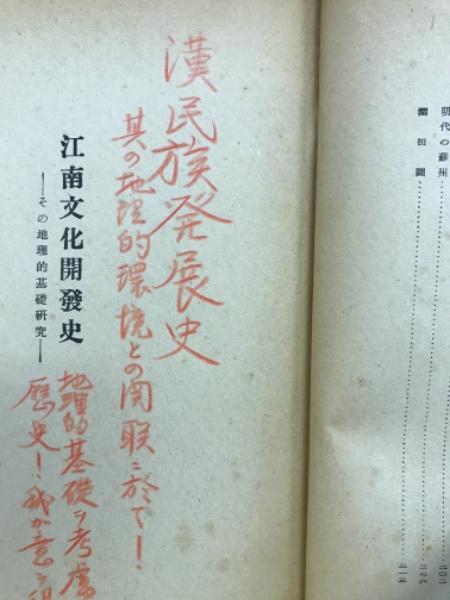 明代の蘇州
漢民族発展史
其の地理的環境との関聯ニ於て！
江南文化開發史
——その地理的基礎研究——
地理的基礎ヲ考慮
歴史！我が意ヲ得